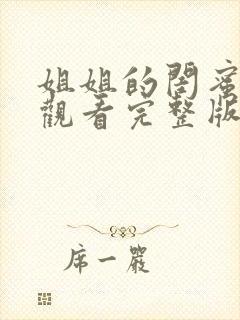 姐姐的閨蜜
觀看完整版
席一嚴